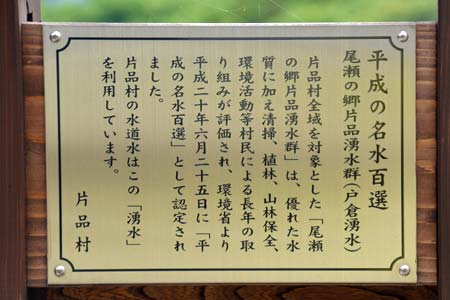 平成の名水百選
尾瀬の郷片品湧水群(戸倉湧水)
片品村全域を対象とした「尾瀬
の郷片品湧水群」は、優れた水
質に加え清掃、植林、山林保全、
環境活動等村民による長年の取
り組みが評価され、環境省より
平成二十年六月二十五日に「平
成の名水百選」として認定され
ました。
片品村の水道水はこの「湧水」
を利用しています。
片品村